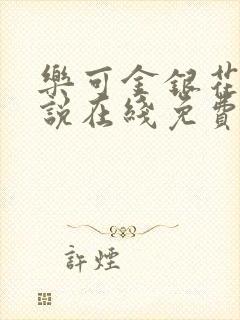 樂可金銀花
說在綫免費
許煙